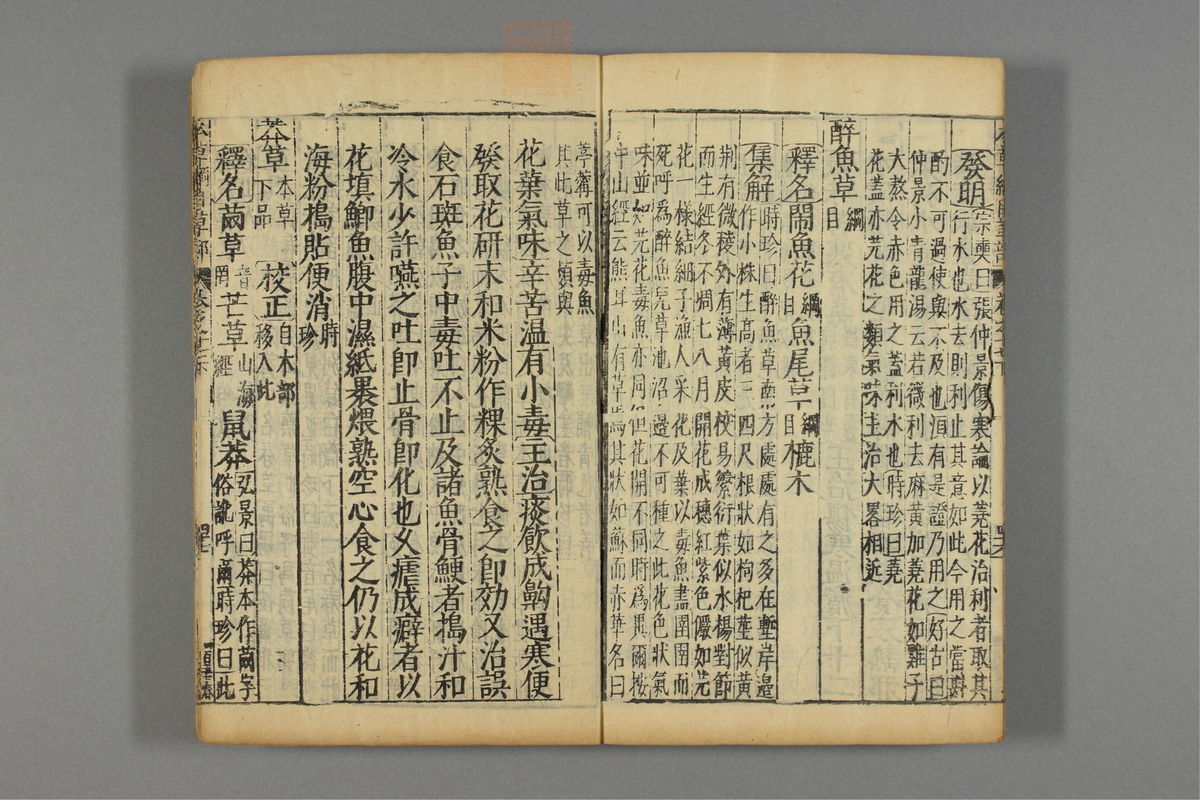 發明宗奭曰張仲景傷寒論以蕘花治利者取其
行水也水去則利止其意如此今用之當斟
酌不可過使與不及也須有是證乃用之好古曰
仲景小青龍湯云若微利去麻黄加蕘花如雞子
大熬令赤色用之蓋利水也時珍曰蕘
花蓋亦芫花之類氣味主治大畧相近
醉魚草綱目
釋名鬧魚花綱目魚尾草綱目樚木
集解時珍曰醉魚草南方處處有之多在塹岸邊
作小株生高者三四尺根狀如枸杞莖似黄
荆有微稜外有薄黄皮枝易繁衍葉似水楊對節
而生經冬不凋七八月開花成穗紅紫色儼如芫
花一様結細子漁人采花及葉以毒魚盡圉圉而
死呼爲醉魚兒草池沼邊不可種之此花色狀氣
味並如芫花毒魚亦同但花開不同時爲異爾按
中山經云熊耳山有草焉其狀如蘇而赤華名曰
葶薴可以毒魚
其此草之類與
花葉氣味辛苦温有小毒主治痰飲成齁遇寒便
發取花研末和米粉作粿炙熟食之即効又治誤
食石斑魚子中毒吐不止及諸魚骨鯁者搗汁和
冷水少許嚥之吐即止骨即化也久瘧成癖者以
花填鯽魚腹中濕紙裹煨熟空心食之仍以花和
海粉搗貼便消時珍
莽草本草下品校正自木部移入此
釋名䒽草音罔芒草山海經鼠莽弘景曰莽本作䒽字
俗訛呼䒽時珍曰此